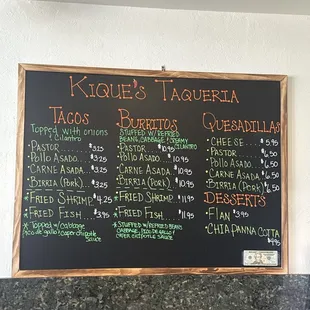 Kique's Taqueria
Tacos
Topped with onions
& Cilantro
Pastor $3.25
Pollo Asado $3.25
Carne Asada $3.25
Birria (Pork) $3.25
*Fried Shrimp $4.25
*Fried Fish $3.95
* Topped w/ Cabbage
Pico de gallo/ & caper chipotle
Sauce
Burritos
Stuffed w/ Refried
Beans, Cabbage & Creamy
Cilantro
Pastor $10.95
Pollo Asado $10.95
Carne Asada $10.95
Birria (Pork) $10.95
*Fried Shrimp $11.95
*Fried Fish $11.95
*Stuffed w/ Refried Beans
Cabbage, Pico de Gallo/
Caper Chipotle Sauce
Quesadillas
Cheese $5.95
Pastor $6.50
Pollo Asado $6.50
Carne Asada $6.50
Birria (Pork) $6.50
Desserts
Flan $3.95
Chia Panna Cotta
$4.95